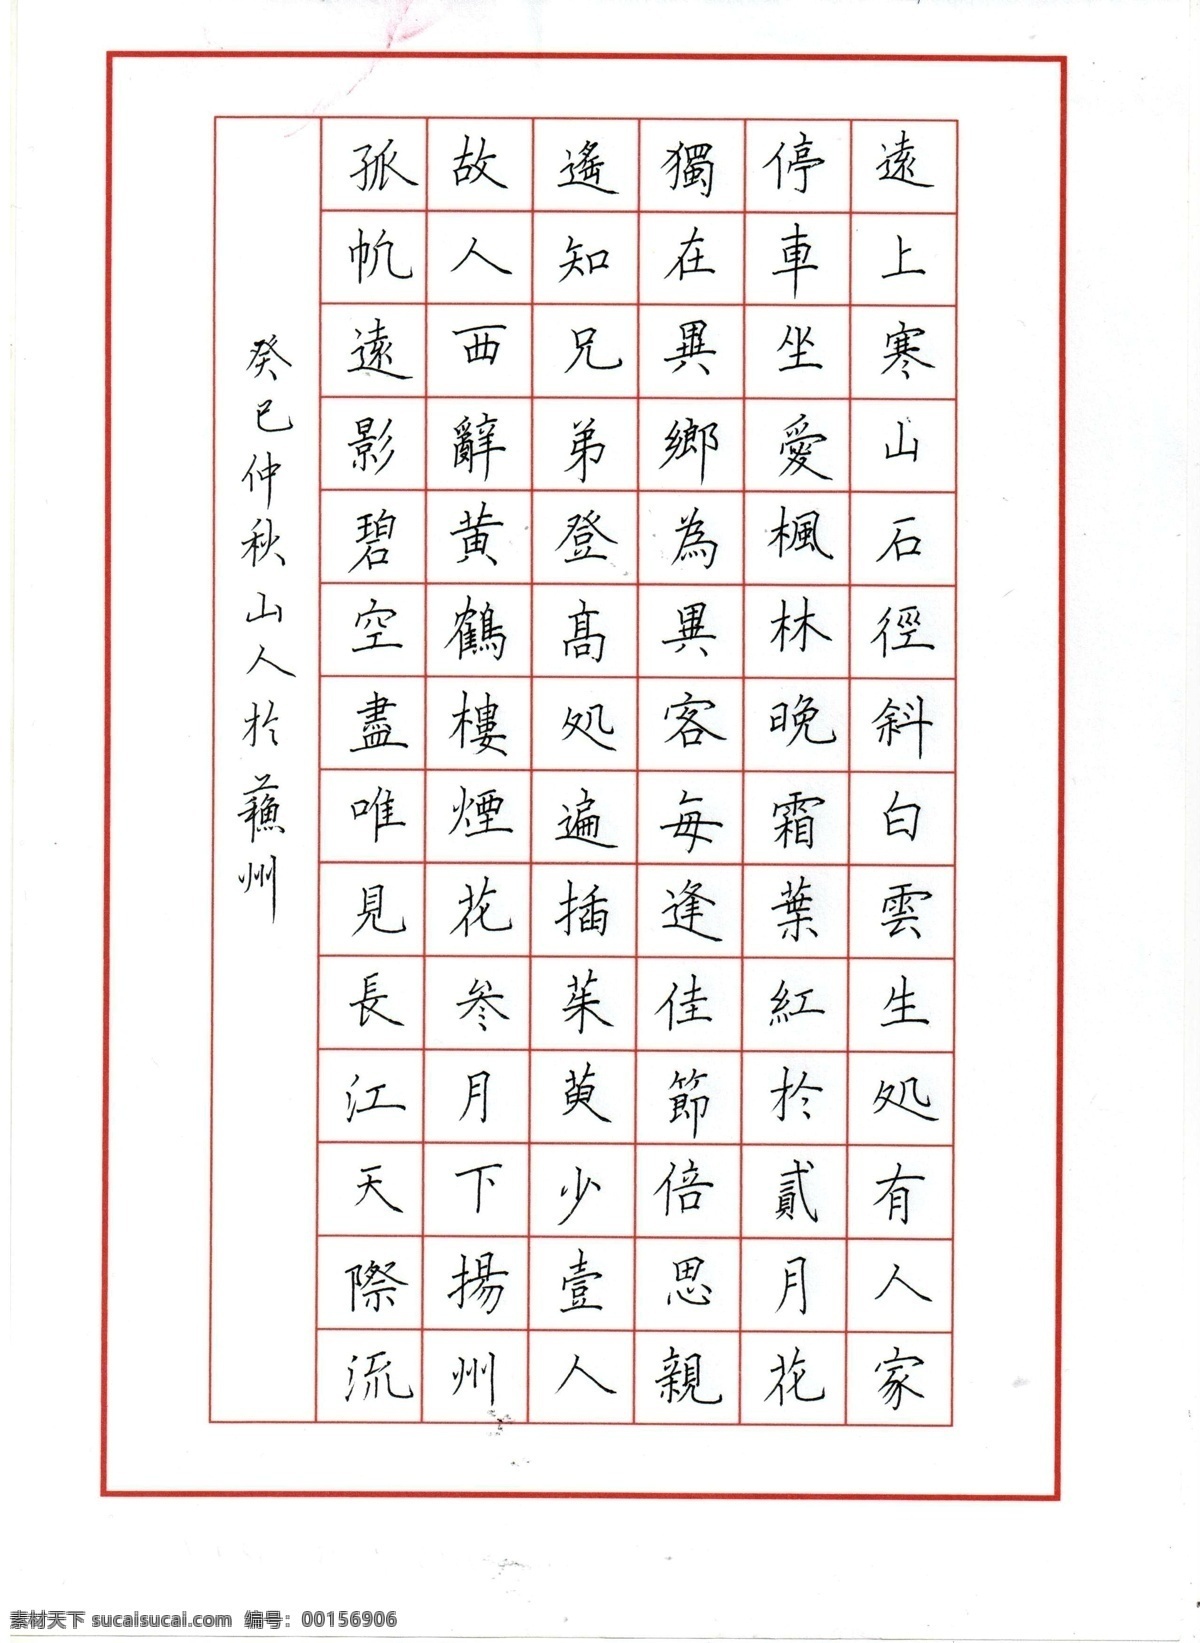 遠上寒山石徑斜白雲生处有人家
停車坐愛楓林晚霜葉紅於貳月花
獨在異鄉為異客每逢佳節倍思親
遙知兄弟登高处遍插茱萸少壹人
故人西辭黃鶴樓煙花叁月下揚州
孤帆遠影碧空盡唯見長江天際流
癸巳仲秋山人於蘇州
素材天下 sucaisucai.com 编号：00156906